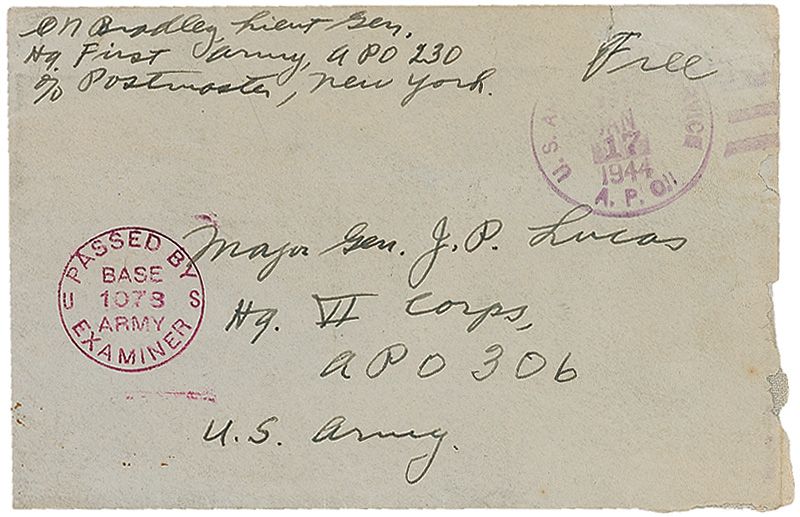 O N Bradley Lieut Gen.
Hq. First Army, APO 230
c/o Postmaster, New York.
Free
U.S. A
JAN
17
1944
A. P. O.
VICE
PASSED BY
BASE
1073
ARMY
EXAMINER
U S
Major Gen. J. P. Lucas
Hq. VI Corps,
APO 306
U.S. Army.